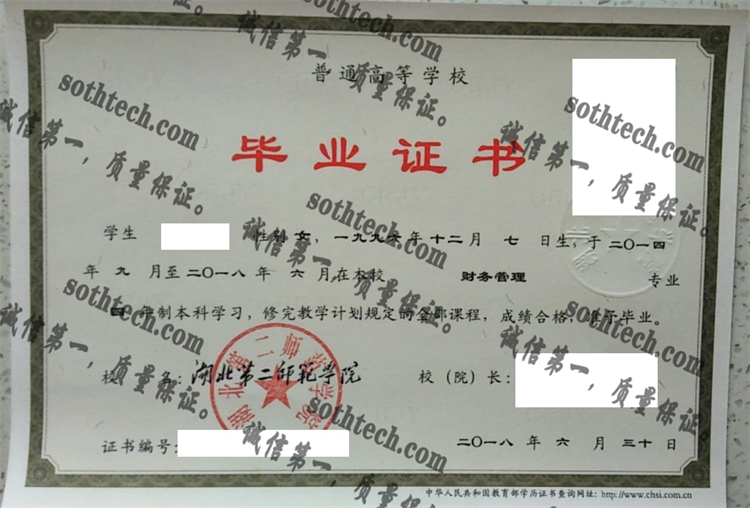 普通高等学校
毕业证书
学生 性别 女，一九九六年十二月 七 日生，于二〇一四
年 九 月至二〇一八年 六 月在本校 财务管理 专业
四 年制本科学习，修完教学计划规定的全部课程，成绩合格，准予毕业。
校 名：湖北第二师范学院 校（院）长：
湖北第二师范学院
证书编号： 二〇一八年 六 月 三十日
中华人民共和国教育部学历证书查询网址：http://www.chsi.com.cn
sothtech.com
诚信第一，质量保证。
sothtech.com
诚信第一，质量保证。
sothtech.com
诚信第一，质量保证。
sothtech.com
诚信第一，质量保证。
sothtech.com
诚信第一，质量保证。
sothtech.com
诚信第一，质量保证。
sothtech.com
诚信第一，质量保证。